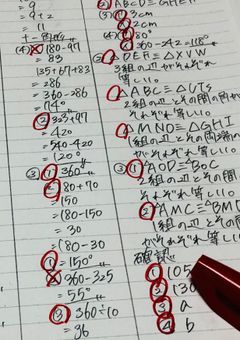 9
+ 2
(4) × 180-97
= 83
135+67+83
= 286
360-286
= 74°
② 323+97
= 420
540-420
= 120°
③ ① 360°
② 80+70
= 150
180-150
= 30
180-30
① = 150°
× 360-325
= 55°
③ 360÷10
= 36
② ABCD≡GHEF
(3) ① 3cm
② 2cm
(4) × 80°
× 360-242=118°
① △DEF≡△XVW
3組の辺がそれぞれ
等しい。
△ABC≡△UTS
2組の辺とその間の角が
それぞれ等しい。
△MNO≡△GHI
1組の辺とその両端の
がそれぞれ等しい。
③ ① △AOD≡△BOC
1組の辺とその
それぞれ等しい。
② △AMC≡△BM
がそれぞれ等
確認
① 105
② 130
③ a
④ b